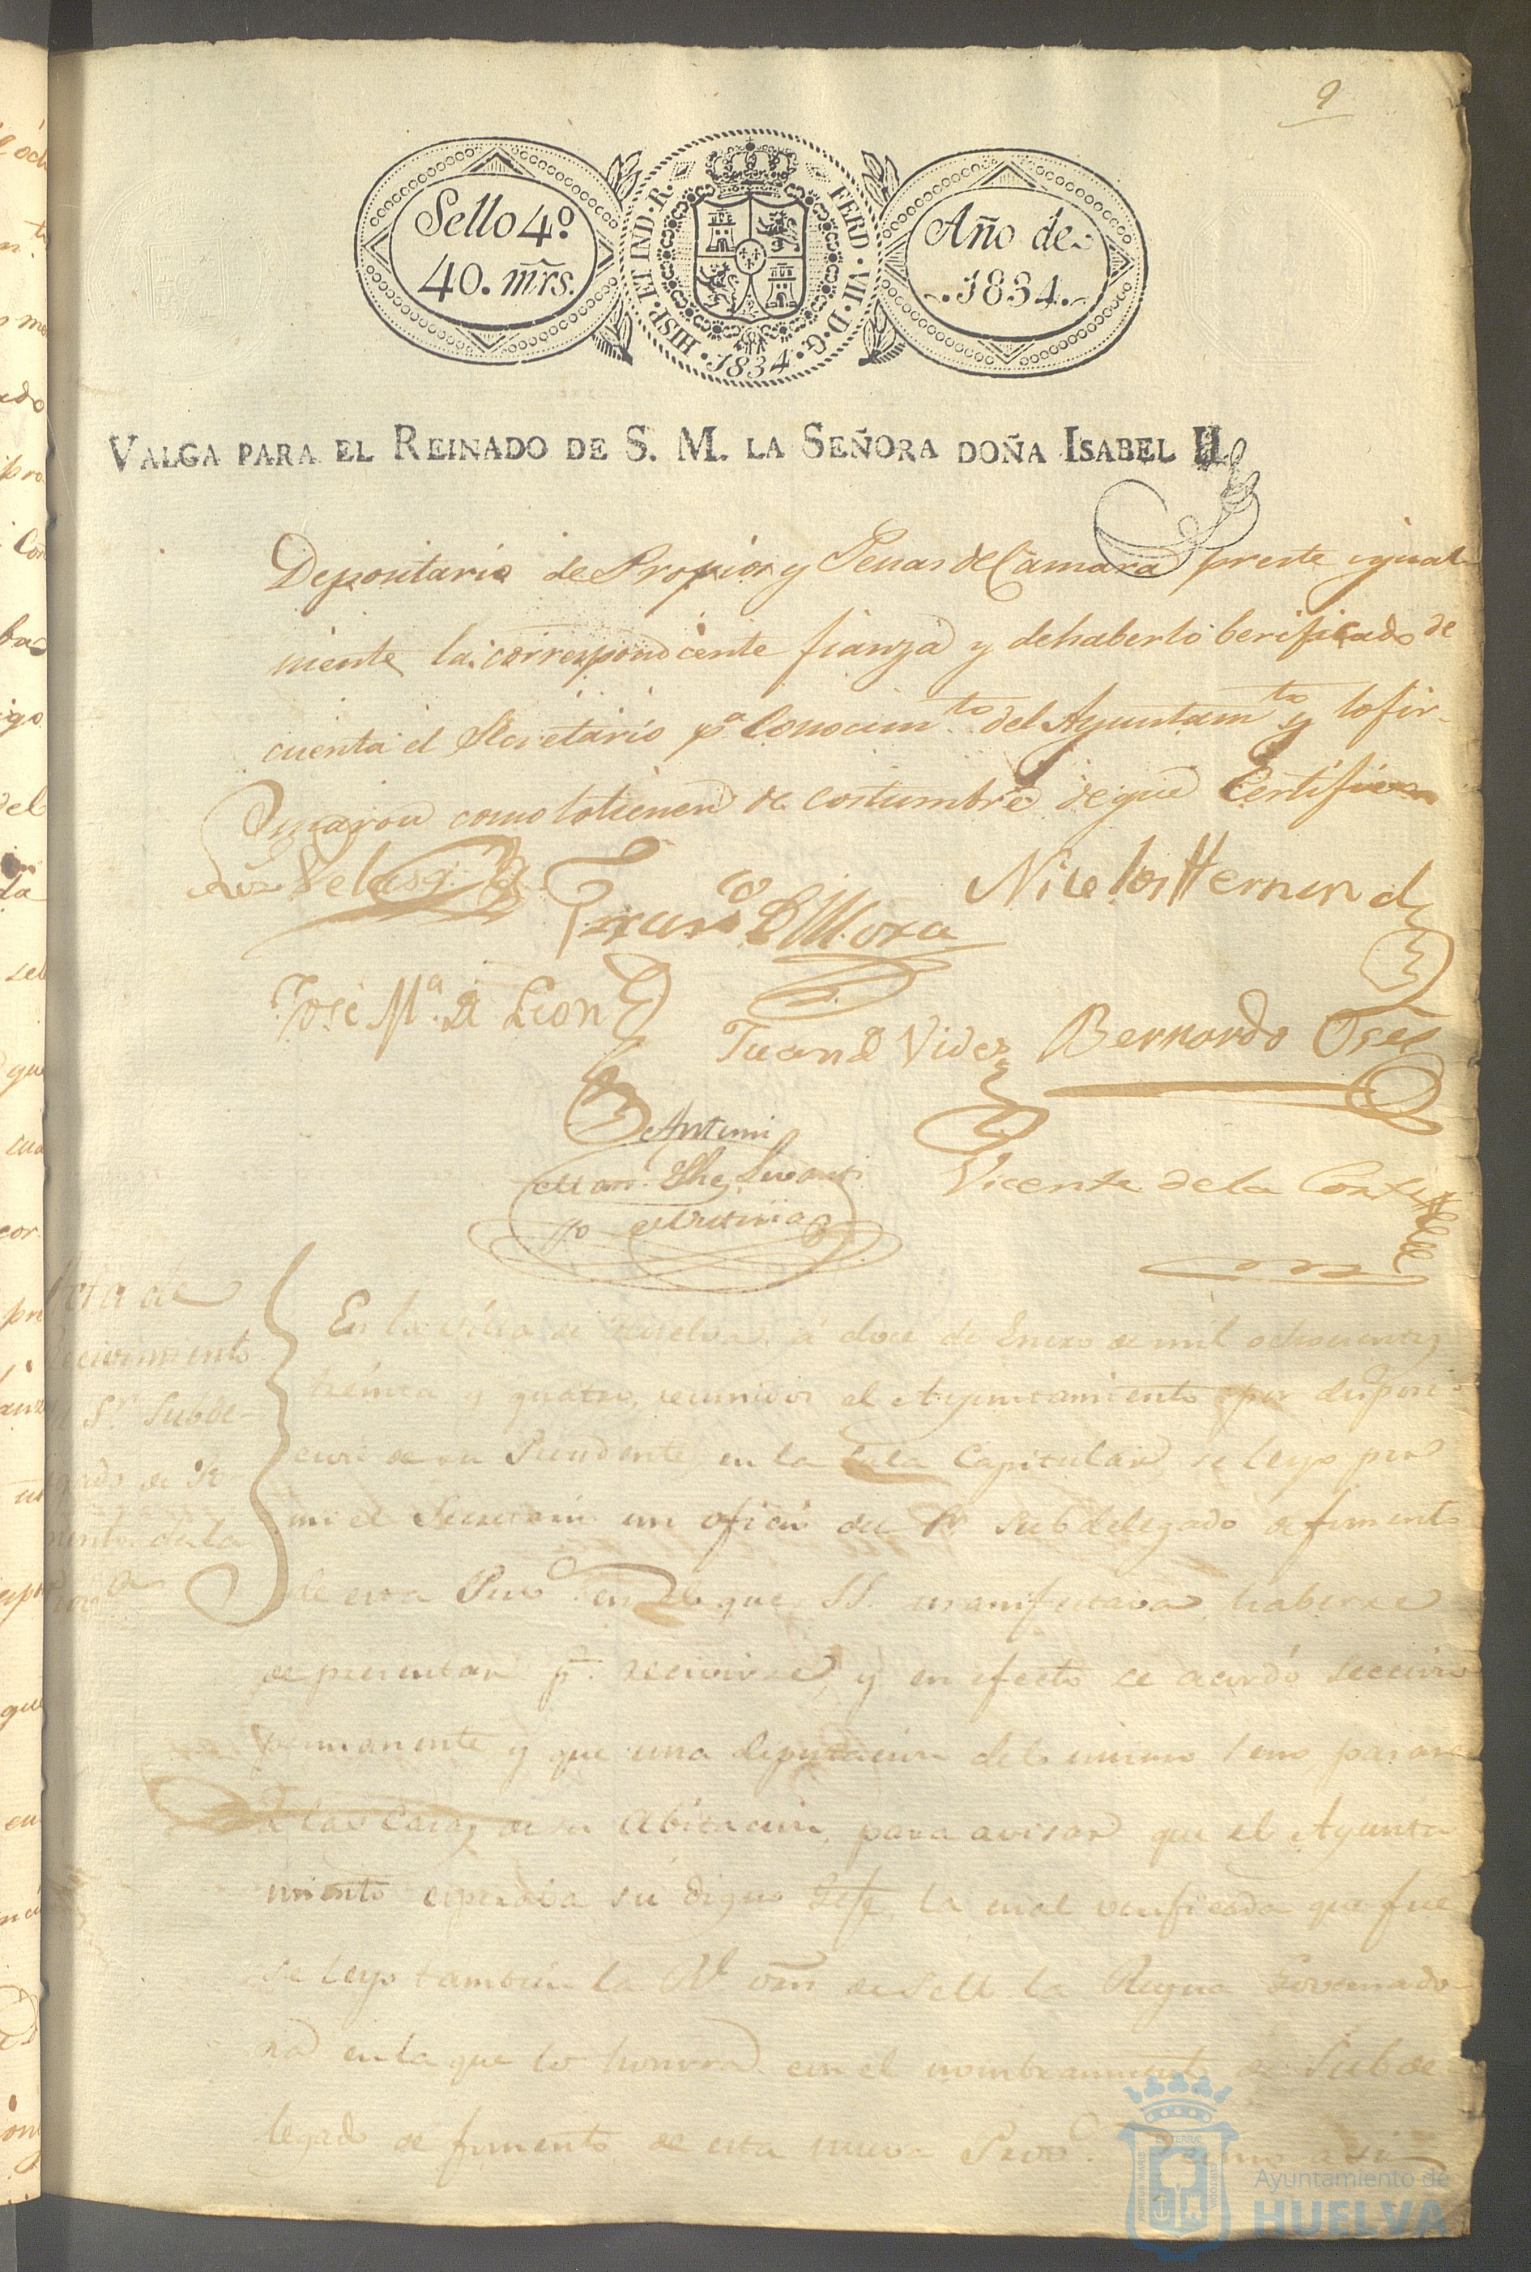 9
Sello 4º.
40. mrs.
HISP. ET IND. R. FERD. VII. D. G. 1834.
Año de
1834.
VALGA PARA EL REINADO DE S. M. LA SEÑORA DOÑA ISABEL II.
Depositario de Propios y Penas de Camara preste igual
mente la correspondiente fianza y de haberlo berificado de
cuenta el Secretario pª Conocimto del Ayuntamto y lo fir-
maron como lo tienen de costumbre de que Certifico
Velasqz
Franco D Mora
Nicolos Hernand
José Mª d Leon
Juan d Vides
Bernardo Oses
Antemi
Vicente de la Corte
Acta de
recivimiento
Sr. Subde-
legado de Fo-
mento de la
Provª
En la villa de Huelva á doce de Enero de mil ochocientos
treinta y quatro, reunidos el Ayuntamiento por disposi-
cion de su Presidente en la Sala Capitular se leyo por
mi el Secretario un oficio del Sr. Subdelegado de fomento
de esta Provª en el que SS. manifestava haberse
de presentar pª recivirse, y en efecto se acordó seccion
permanente y que una diputacion del mismo seno, pasase
a las Casas de su abitacion, para avisar que el Ayunta
miento esperava su digno Gefe, la cual verificada que fue
se leyo tambien la Rl orn de S M la Reyna Governado
ra en la que lo honrra con el nombramiento de Subde-
legado de fomento de esta nueva Provª
Ayuntamiento de
HUELVA